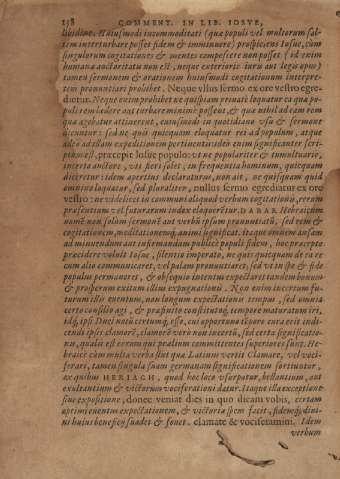 158 COMMENT. IN LIB. IOSVE,
libidine. Huiusmodi incommoditati (que populi vel multorum sal-
tem interturbare posset fidem & imminuere) prospiciens Iosue, cum
singulorum cogitationes & mentes compescere non posset (id enim
humanæ auctoritatu non est, neque exterioris iuris aut legis opus)
tamen sermonem & orationem huiusmodi cogitationum interpre-
tem pronuntiari prohibet. Neque vllus sermo ex ore vestro egre-
diatur. Neque enim prohibet ne quispiam priuatè loquatur ea qua po-
puli rem ledere aut turbare minimè possent, & qua nihil ad eam rem
qua agebatur attinerent, cuiusmodi in quotidiano vsu & sermone
dicuntur: sed ne quis quicquam eloquatur rei ad populum, atque
adeo ad illam expeditionem pertinentis: id enim significanter scri-
ptum est, præcepit Iosue populo: vt ne populariter & tumultuariè,
incerto auctore, vti fieri solet, in frequentia hominum, quicquam
diceretur: idem apertius declaraturus, non ait, ne quisquam quid
omnino loquatur, sed pluraliter, nullus sermo egrediatur ex ore
vestro: ne videlicet in communi aliquod verbum cogitationis, rerum
præsentium vel futurarum index eloqueretur. DABAR Hebraicum
nomē non solùm sermonē aut verbū ipsum pronuntiatū, sed rem &
cogitationem, meditationemq́; animi significat. itaque omnem ansam
ad minuendum aut infirmandum publicè populi fidem, hoc præcepto
præcidere voluit Iosue, silentio imperato, ne quis quicquam de ea re
cum alio communicaret, vel palam pronuntiaret, sed vt in spe & fide
populus permaneret, & obsequio intentus expectaret tandem bonum
& prosperum exitum illius expugnationis. Non enim incertum fu-
turum illis euentum, non longum expectationis tempus, sed omnia
certo consilio agi, & præfinito constitutoq́; tempore maturatum iri,
idq́; ipsi Duci notū certumq́; esse, cui opportuno tempore cura erit indi-
cendi ipsis clamorē, clamorē verò non incertū, sed certa significatio-
nis, qualis est eorum qui prælium committentes superiores sunt. He-
braicè cùm multa verba sint qua Latinum vertit Clamare, vel voci-
ferari, tamen singula suam germanam significationem sortiuntur,
ex quibus HERIAGH, quod hoc loco vsurpatur, bellantium, aut
exultantium & victorum vociferationi datur. Itaque illa exceptione
siue expositione, donec veniat dies in quo dicam vobis, certam
optimi euentus expectationem, & victoriæ spem facit, fidemq́; diui-
ni huius beneficij suadet & fouet. clamate & vociferamini. Idem
verbum